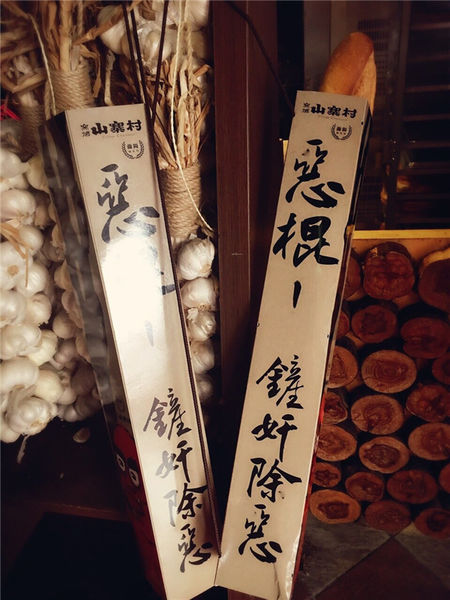 山寨村
惡
鏟奸除惡
山寨村
惡棍—
鏟奸除惡